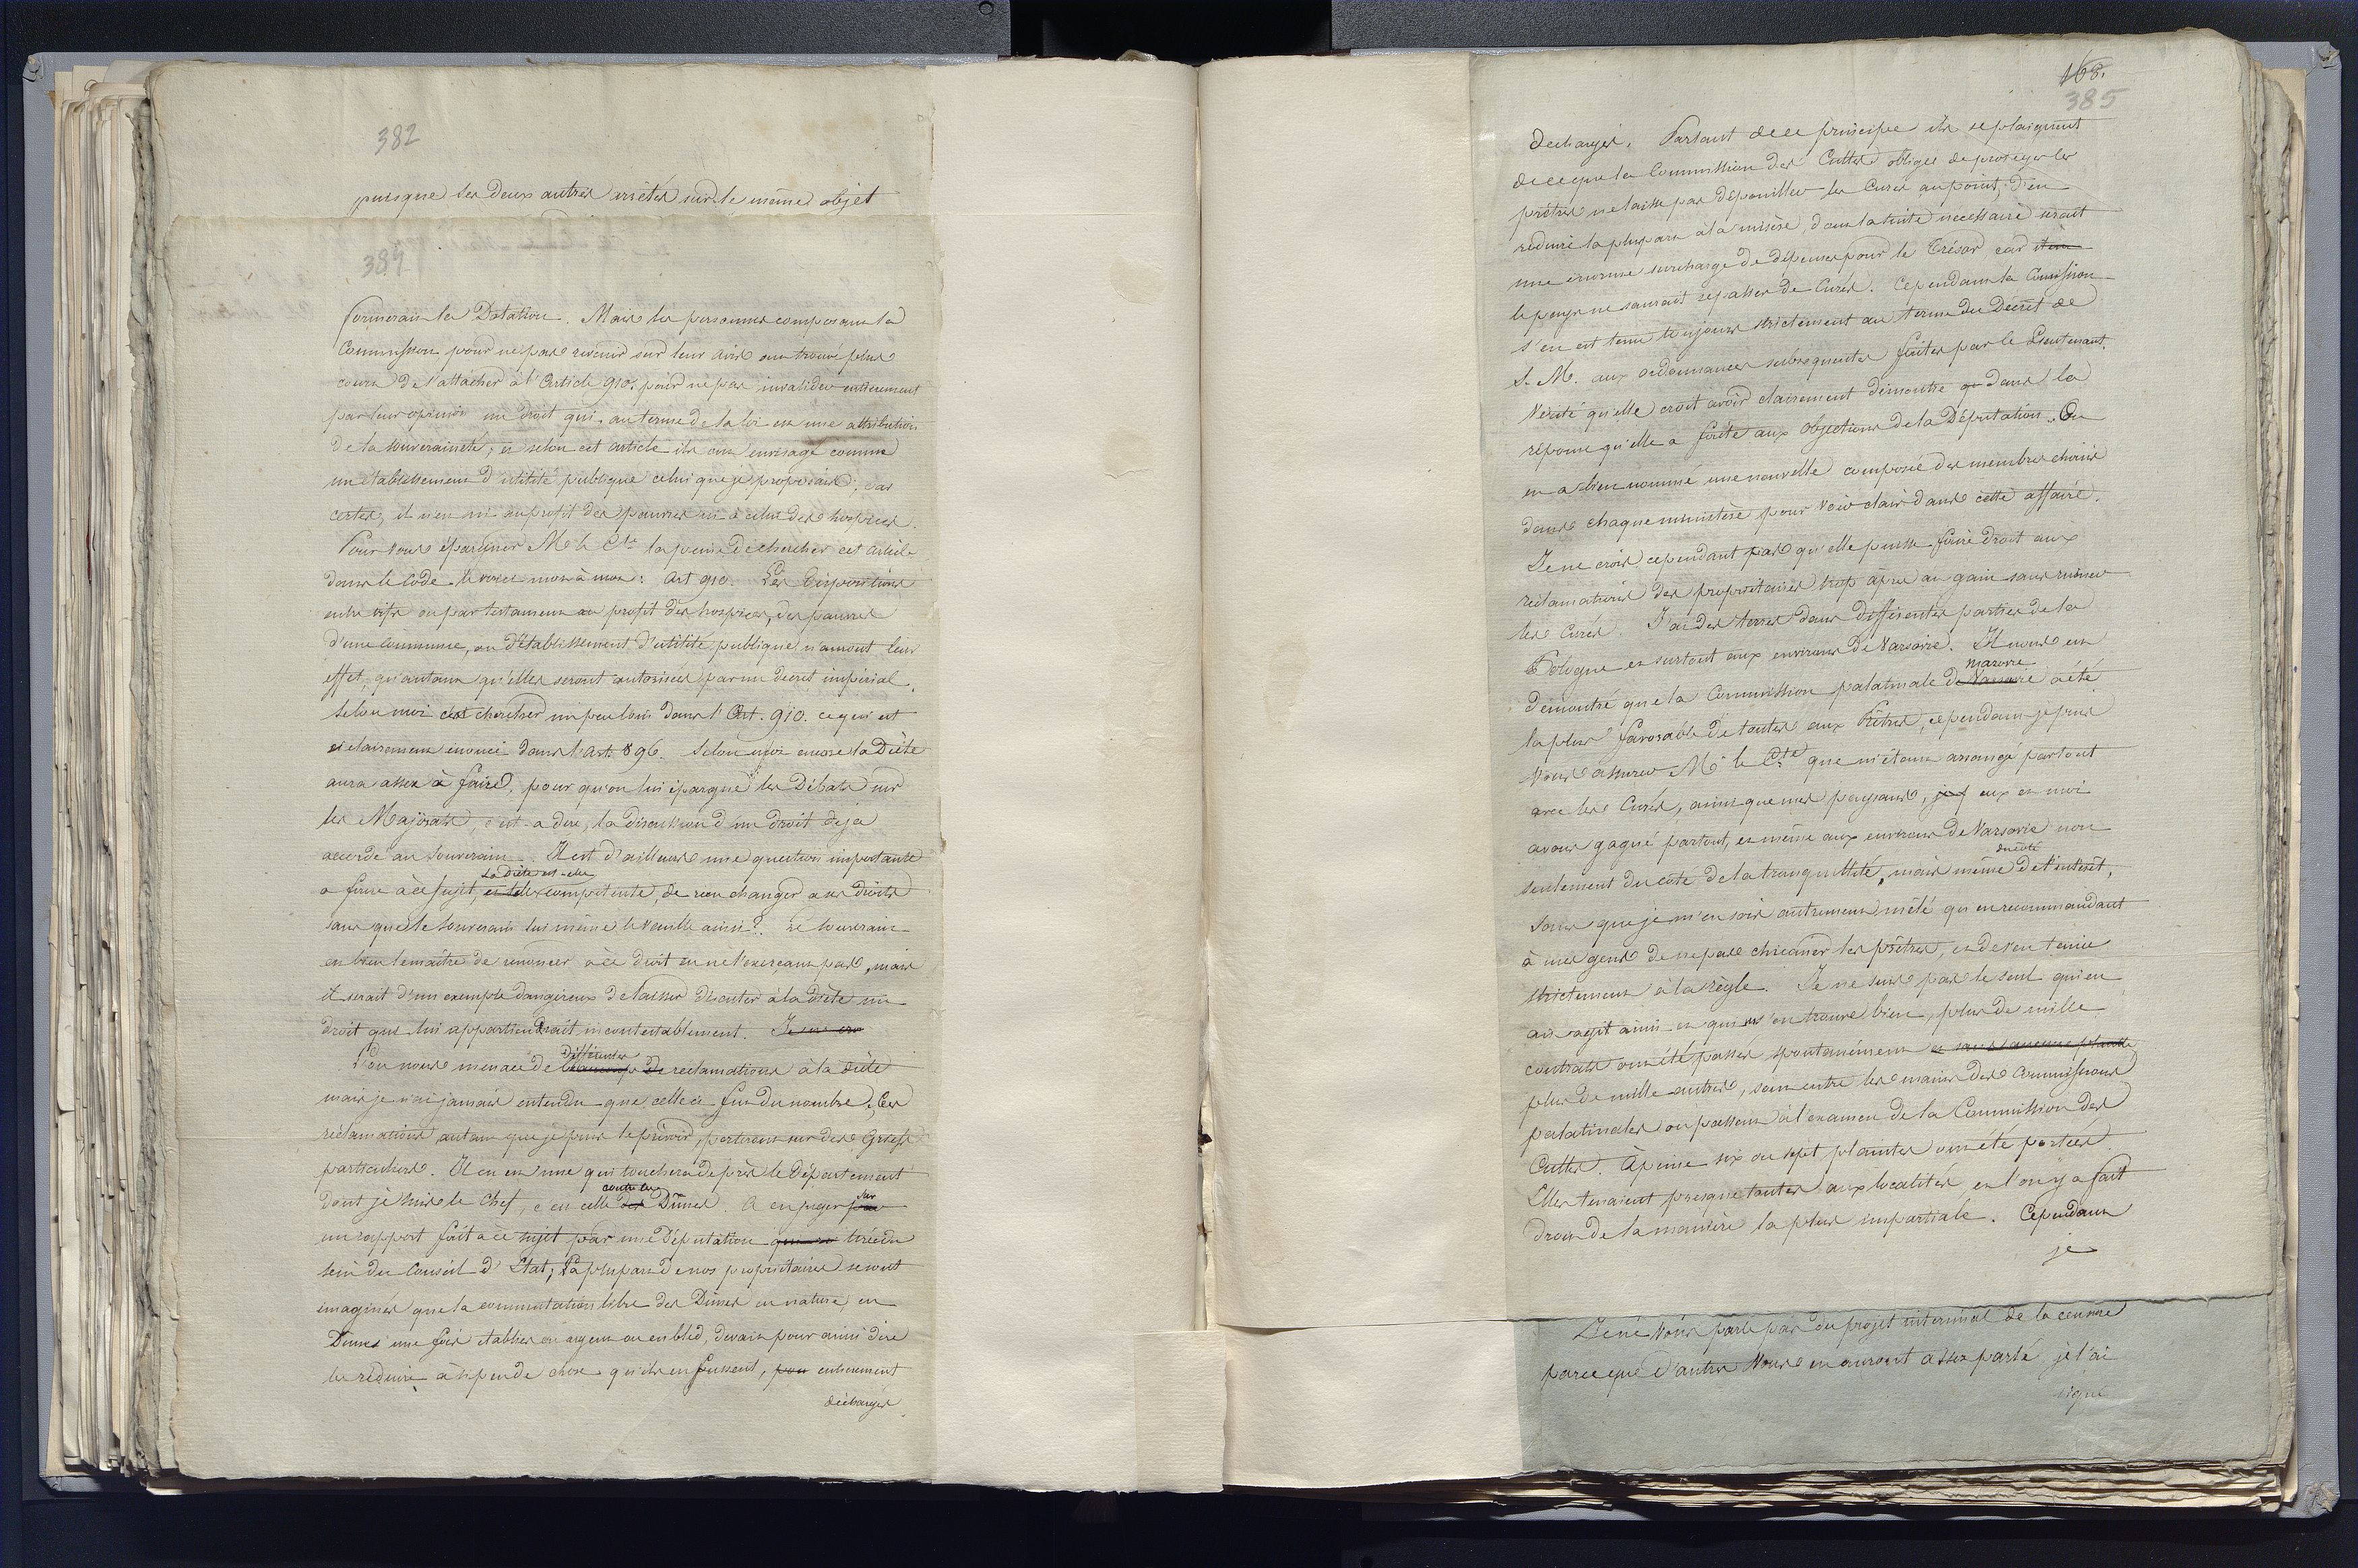 382
puisque les deux autres arrêtés sur le même objet
384
formerais la Dotation. Mais les personnes composant la
Commission pour ne pas revenir sur leur avis ont trouvé plus
court de s'attacher à l'Article 910. pour ne pas invalider entierement
par leur opinion un droit qui au terme de la loi est une attribution
de la souveraineté; et selon cet article ils ont envisagé comme
un établissement d'utilité publique celui que je proposais; car
certes, il n'en ni au profit des pauvres ni à celui des hospices.
Pour vous épargner Mr le Cte la peine de chercher cet article
dans le Code le voici mot à mot: Art 910. Les Dispositions
entre vifs ou par testament au profit des hospices, des pauvres
d'une Commune, ou d'établissement d'utilité publique n'auront leur
effet, qu'autant qu'elles seront autorisées par un decret impérial.
Selon moi c'est chercher un peu loin dans l'Art. 910. ce qui est
si clairement énoncé dans l'art. 896. Selon moi encore la Diète
aura assez à faire, pour qu'on lui épargne les Débats sur
les Majorats, c'est-a dire, la discussion d'un droit déja
accordé au Souverain. Il est d'ailleurs une question importante
la Diète est-elle
a faire à ce sujet, est elle competente, de rien changer a ses droits
sans que le Souverain lui même le veuille ainsi? Le souverain
est bien le maître de renoncer à ce droit en ne l'exerçant pas, mais
il serait d'un exemple dangereux de laisser discuter à la diète un
droit qui lui appartiendrait incontestablement. Je ne cro
différentes
L'on nous menace de beaucoup de reclamations à la diète
mais je n'ai jamais entendu que celle ci fut du nombre. Ces
réclamations autant que je puis le prévoir, porteront sur des Griefs
particuliers. Il en est une qui touchera de près le Département
contre les
dont je suis le Chef, c'est celle des Dîmes. A en juger par
sur
un rapport fait à ce sujet par une Députation qui se tirée du
sein du Conseil d'Etat; la plupart de nos propriétaires se sont
imaginés que la commutation libre des Dîmes en nature, en
Dîmes une fois etablies en argent ou en bled, devait pour ainsi dire
les réduire à si peu de chose qu'ils en fussent, pou entierement
déchargés
168.
385
dechargés. Partant de ce principe ils se plaignent
de ce que la Commission des Cultes obligée de protéger les
prêtres ne laisse pas dépouiller les Curés au point, d'en
reduire la plupart à la misère, dont la suite nécessaire serait
une énorme surcharge de dépenses pour le Trésor car
le pays ne saurait se passer de Curés. Cependant la Comission
s'en est tenu toujours strictement au terme du Décret de
S. M. aux ordonnances subsequentes faites par le Lieutenant.
Vérité qu'elle croit avoir clairement démontré dans la
réponse qu'elle a faite aux objections de la Députation. On
en a bien nommé une nouvelle composée des membres choisis
dans chaque ministère pour voir clair dans cette affaire.
Je ne crois cependant pas qu'elle puisse faire droit aux
réclamations des propriétaires trop âpres au gain sans ruiner
les Curés. J'ai des terres dans differentes parties de la
Pologne et surtout aux environs de Varsovie. Il nous est
Mazovie
démontré que la Commission palatinale de Varsovie a été
la plus favorable de toutes aux Prêtres, cependant je puis
vous assurer Mr le Cte que m'étant arrangé partout
avec les Curés, ainsi que mes paysans, eux et moi
avons gagné partout, et même aux environs de Varsovie non
du coté
seulement du coté de la tranquillité, mais même de l'intérêt,
sans que je m'en sois autrement mêlé qu'en recommandant
à mes gens de ne pas chicaner les prêtres, et de s'en tenir
strictement à la règle. Je ne suis pas le seul qui en
ait agit ainsi et qui s'en trouve bien, plus de mille
contrats ont été passés spontanément et sans aucune plainte
plus de mille autres, sont entre les mains des Commissions
palatinales ou passent à l'examen de la Commission des
Cultes. A peine six ou sept plaintes ont été portées.
Elles tenaient presque toutes aux localités, et l'on y a fait
droit de la manière la plus impartiale. Cependant
je
Je ne vous parle pas du projet interminal de la censure
parce que d'autres vous en auront assez parlé je l'ai
signé